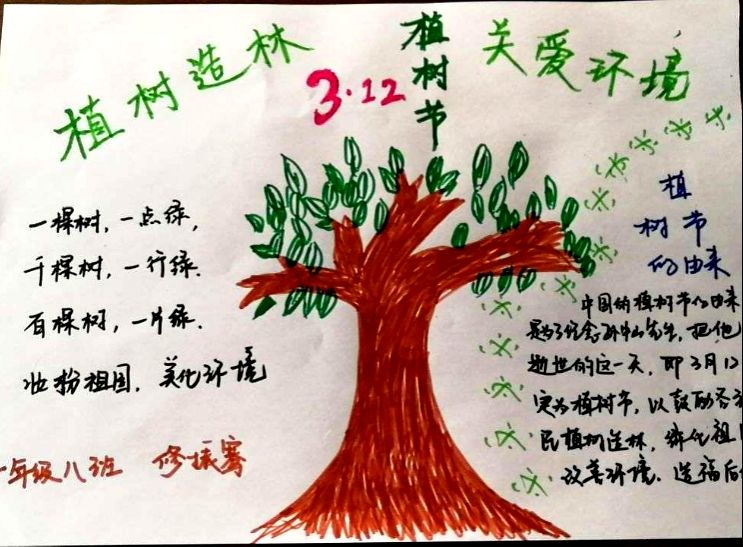 植树造林
3.12
植树节
关爱环境
一棵树，一点绿，
千棵树，一行绿.
百棵树，一片绿.
妆粉祖国，美化环境
年级八班
植
树节
的由来
中国的植树节的由来
是为了纪念孙中山先生，把他
逝世的这一天，即3月12
定为植树节，以鼓励各
民植树造林，绿化祖
改善环境.造福后